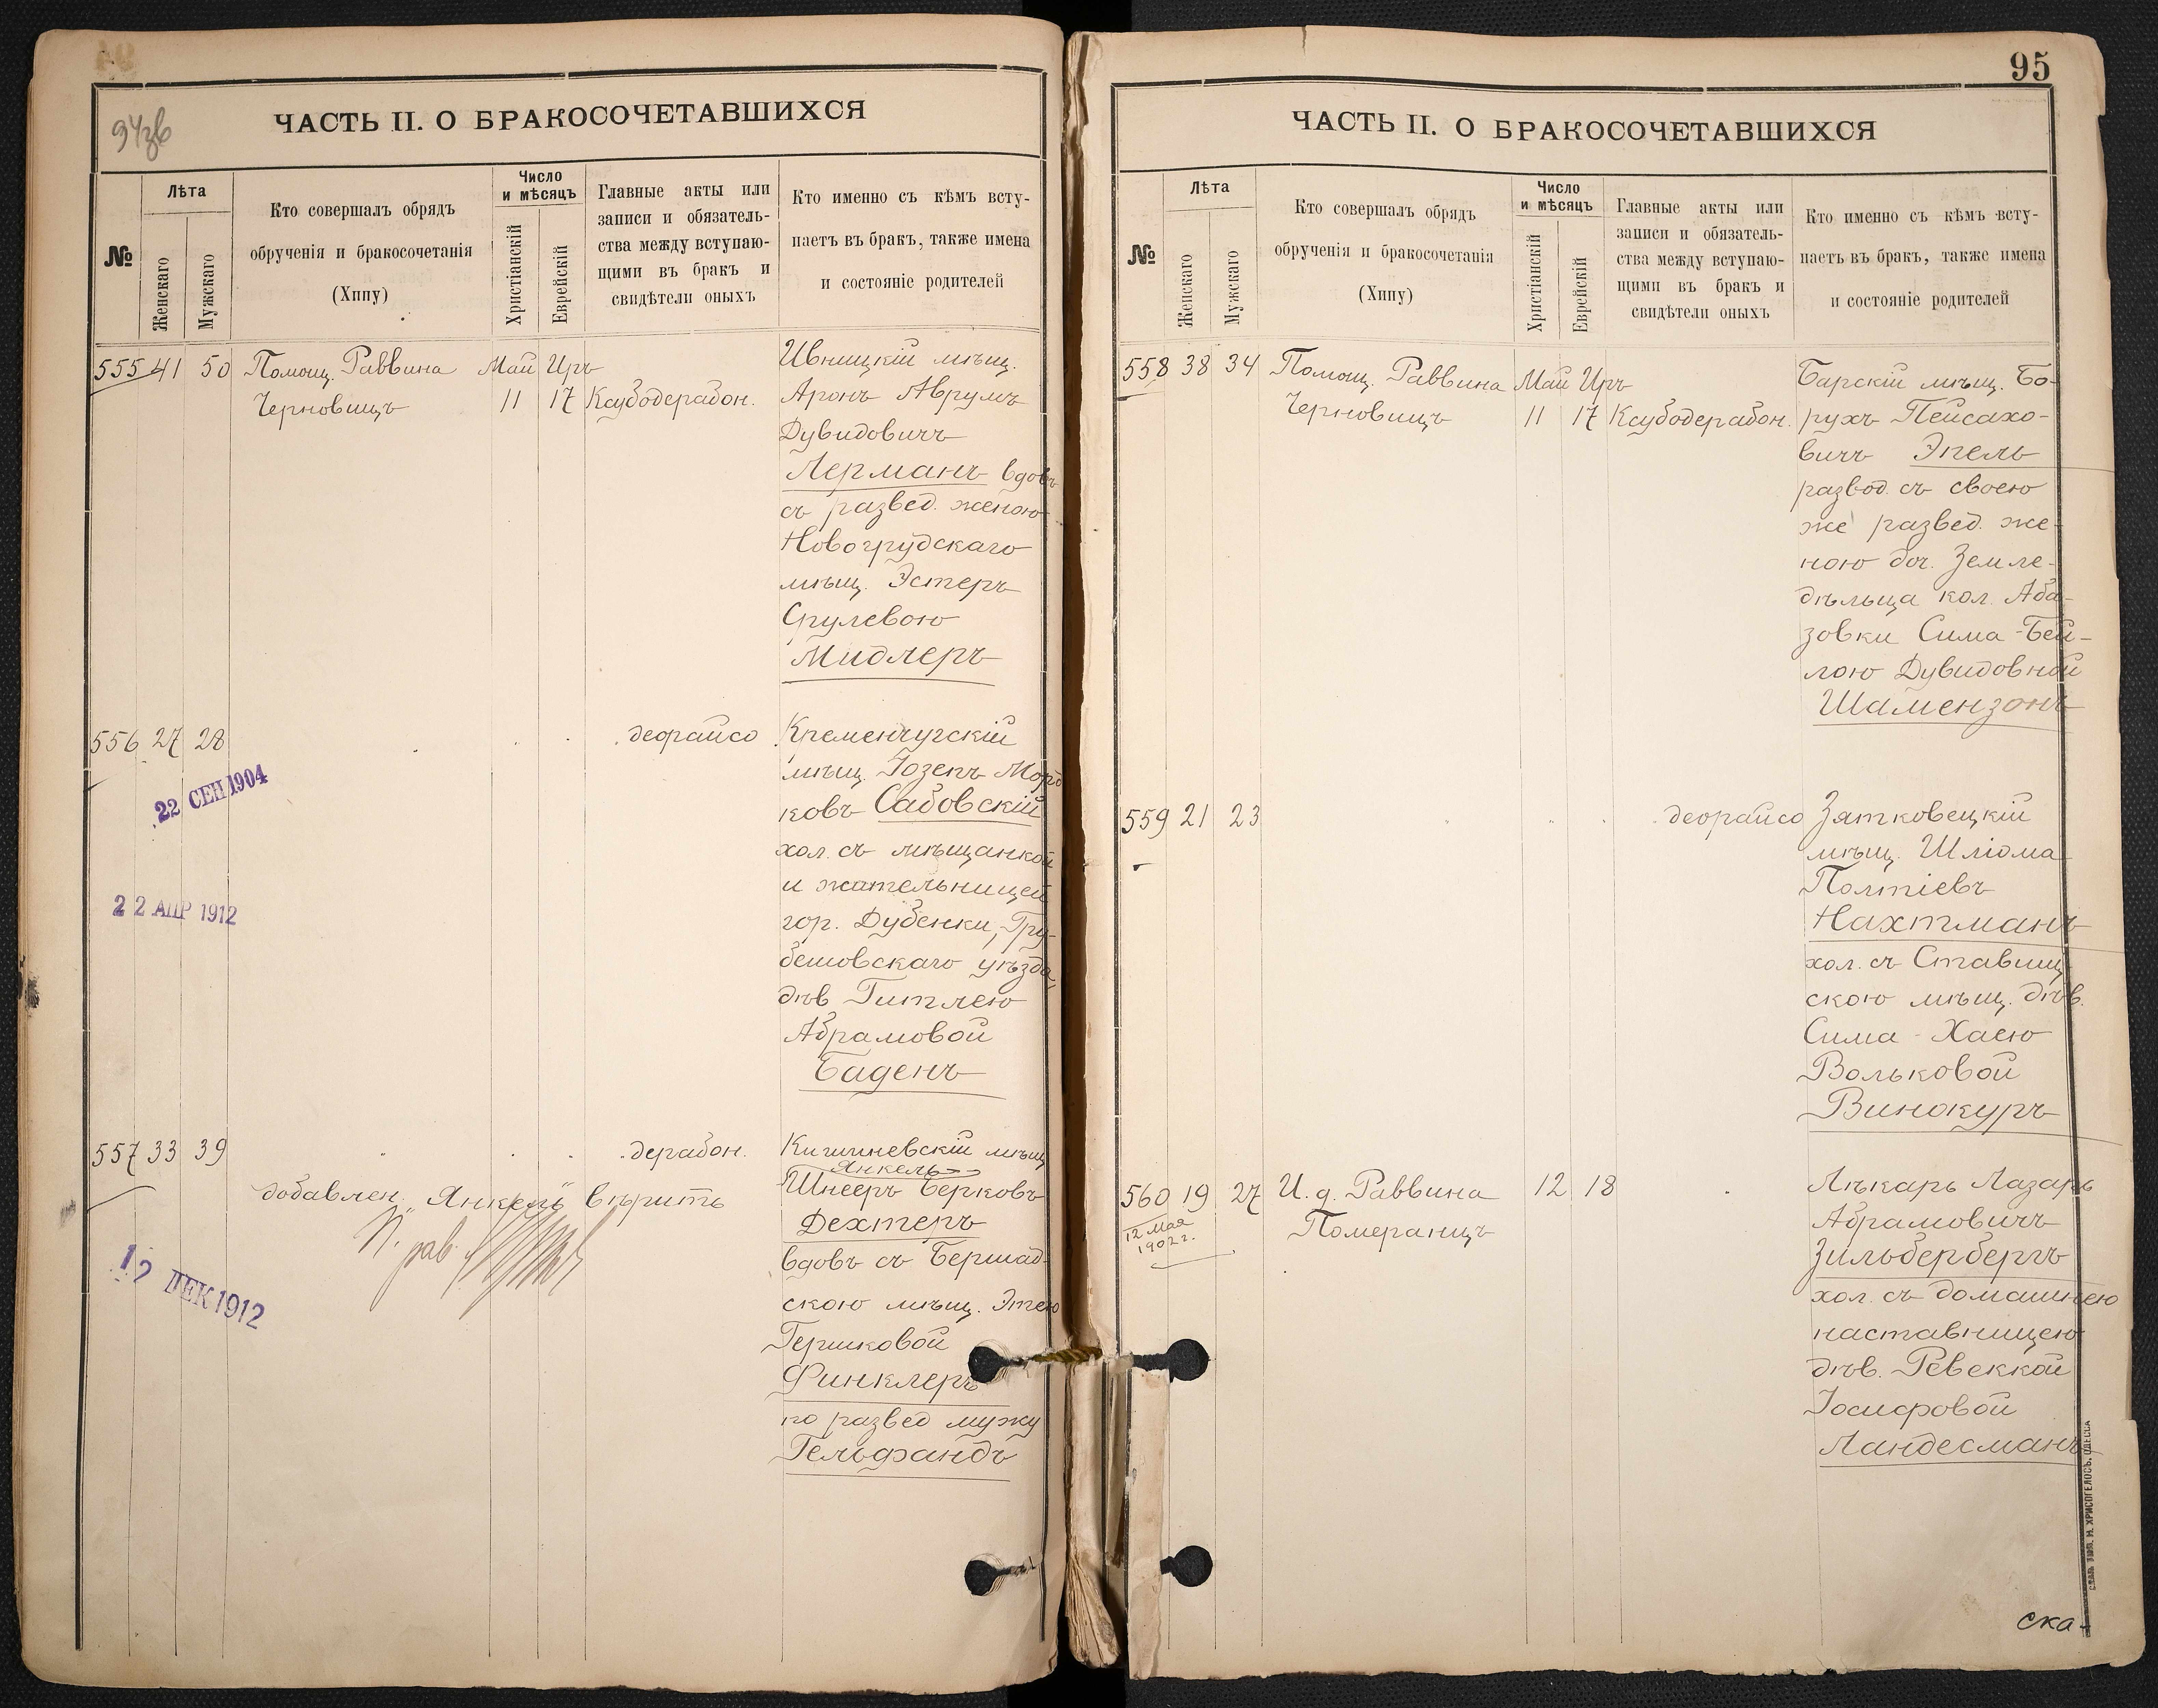 94об
ЧАСТЬ II. О БРАКОСОЧЕТАВШИХСЯ
№
Лѣта
Женскаго
Мужскаго
Кто совершалъ обрядъ
обрученія и бракосочетанія
(Хипу)
Число
и мѣсяцъ
Христіанскій
Еврейскій
Главные акты или
записи и обязатель-
ства между вступаю-
щими въ бракъ и
свидѣтели оныхъ
Кто именно съ кѣмъ всту-
паетъ въ бракъ, также имена
и состояніе родителей
555 41 50 Помощ. Раввина Май Иръ
Черновицъ 11 17 Ксубодерабон.
Ивницкій мѣщ.
Аронъ Аврумъ
Дувидовичъ
Лерманъ вдовъ
съ развед. женою
Новогрудскаго
мѣщ. Эстеръ
Срулевою
Мидлеръ
556 27 28 деорайсо
22 СЕН 1904
22 АПР 1912
Кременчугскій
мѣщ. Іозепъ Морд
ковъ Садовскій
хол. съ мѣщанкой
и жательницей
гор. Дубенки, Гру-
бешовскаго уѣзда,
дѣв Гитлею
Абрамовой
Баденъ
557 33 39 дерабон.
добавлен. „Янкель" вѣрить
П. рав.
12 ДЕК 1912
Кишиневскій мѣщ
Янкель
Шнееръ Берковъ
Дехтеръ
вдовъ съ Бершад-
скою мѣщ. Этею
Гершковой
Финклеръ
по развед мужу
Гельфандъ
95
ЧАСТЬ II. О БРАКОСОЧЕТАВШИХСЯ
№
Лѣта
Женскаго
Мужскаго
Кто совершалъ обрядъ
обрученія и бракосочетанія
(Хипу)
Число
и мѣсяцъ
Христіанскій
Еврейскій
Главные акты или
записи и обязатель-
ства между вступаю-
щими въ бракъ и
свидѣтели оныхъ
Кто именно съ кѣмъ всту-
паетъ въ бракъ, также имена
и состояніе родителей
558 38 34 Помощ. Раввина Май Иръ
Черновицъ 11 17 Ксубодерабон.
Барскій мѣщ. Бо-
рухъ Пейсахо-
вичъ Эпель
развод. съ своею
же развед. же-
ною доч. Земле-
дѣльца кол. Аба-
зовки Сима-Бей-
лою Дувидовной
Шамензонъ
559 21 23 деорайсо
Зятковецкій
мѣщ. Шліома
Полтіевъ
Нахтманъ
хол. съ Ставищ-
скою мѣщ. дѣв.
Сима-Хаею
Вольковой
Винокуръ
560 19 27 И. д. Раввина 12 18
Померанцъ
12 Мая
1902 г.
Лѣкарь Лазарь
Абрамовичъ
Зильбербергъ
хол. съ домашнею
наставницею
дѣв. Ревеккой
Іосифовой
Ландесманъ
ска-